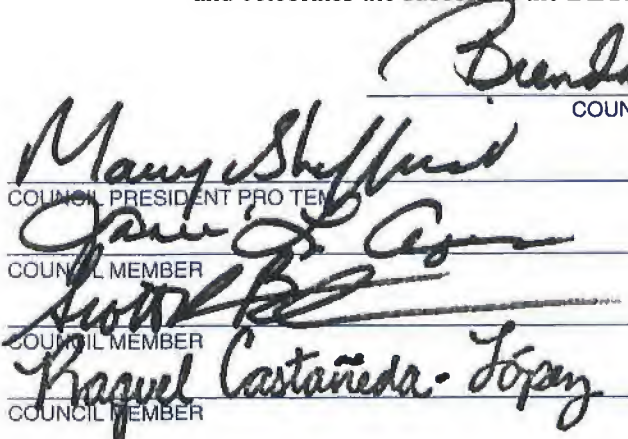 Brenda
COUN
Mary Sheffield
COUNCIL PRESIDENT PRO TEM
Janeé L. Ayers
COUNCIL MEMBER
Scott
COUNCIL MEMBER
Raquel Castañeda-López
COUNCIL MEMBER